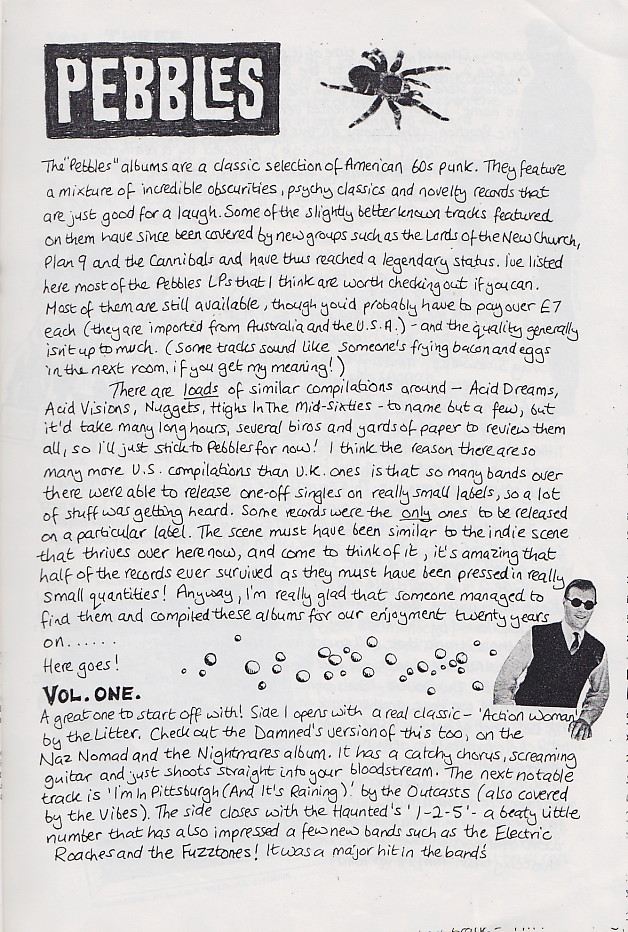 PEBBLES
The "Pebbles" albums are a classic selection of American 60s punk. They feature
a mixture of incredible obscurities, psychy classics and novelty records that
are just good for a laugh. Some of the slightly better known tracks featured
on them have since been covered by new groups such as the Lords of the New Church,
Plan 9 and the Cannibals and have thus reached a legendary status. I've listed
here most of the Pebbles LPs that I think are worth checking out if you can.
Most of them are still available, though you'd probably have to pay over £7
each (they are imported from Australia and the U.S.A.) - and the quality generally
isn't up to much. (Some tracks sound like someone's frying bacon and eggs
in the next room, if you get my meaning!)
There are loads of similar compilations around - Acid Dreams,
Acid Visions, Nuggets, Highs In The Mid-Sixties - to name but a few, but
it'd take many long hours, several biros and yards of paper to review them
all, so I'll just stick to Pebbles for now! I think the reason there are so
many more U.S. compilations than U.K. ones is that so many bands over
there were able to release one-off singles on really small labels, so a lot
of stuff was getting heard. Some records were the only ones to be released
on a particular label. The scene must have been similar to the indie scene
that thrives over here now, and come to think of it, it's amazing that
half of the records ever survived as they must have been pressed in really
small quantities! Anyway, I'm really glad that someone managed to
find them and compiled these albums for our enjoyment twenty years
on......
Here goes!
VOL. ONE.
A great one to start off with! Side 1 opens with a real classic - 'Action Woman'
by the Litter. Check out the Damned's version of this too, on the
Naz Nomad and the Nightmares album. It has a catchy chorus, screaming
guitar and just shoots straight into your bloodstream. The next notable
track is 'I'm In Pittsburgh (And It's Raining)' by the Outcasts (also covered
by the Vibes). The side closes with the Haunted's '1-2-5' - a beaty little
number that has also impressed a few new bands such as the Electric
Roaches and the Fuzztones! It was a major hit in the band's